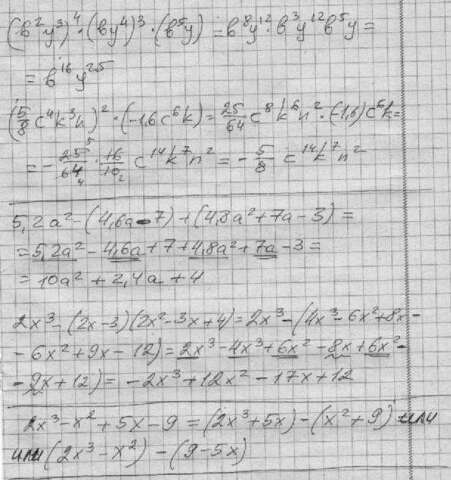 (b²y³)⁴·(by⁴)³·(b⁵y) = b⁸y¹²·b³y¹²b⁵y =
= b¹⁶y²⁵
(5/8 c⁴k³n)²·(-1,6c⁶k) = 25/64 c⁸k⁶n²·(-1,6)c⁶k =
= - 25/64 · 16/10 c¹⁴k⁷n² = - 5/8 c¹⁴k⁷n²
5,2a² - (4,6a - 7) + (4,8a² + 7a - 3) =
= 5,2a² - 4,6a + 7 + 4,8a² + 7a - 3 =
= 10a² + 2,4a + 4
2x³ - (2x - 3)(2x² - 3x + 4) = 2x³ - (4x³ - 6x² + 8x -
- 6x² + 9x - 12) = 2x³ - 4x³ + 6x² - 8x + 6x² -
- 9x + 12) = - 2x³ + 12x² - 17x + 12
2x³ - x² + 5x - 9 = (2x³ + 5x) - (x² + 9) или
или (2x³ - x²) - (9 - 5x)